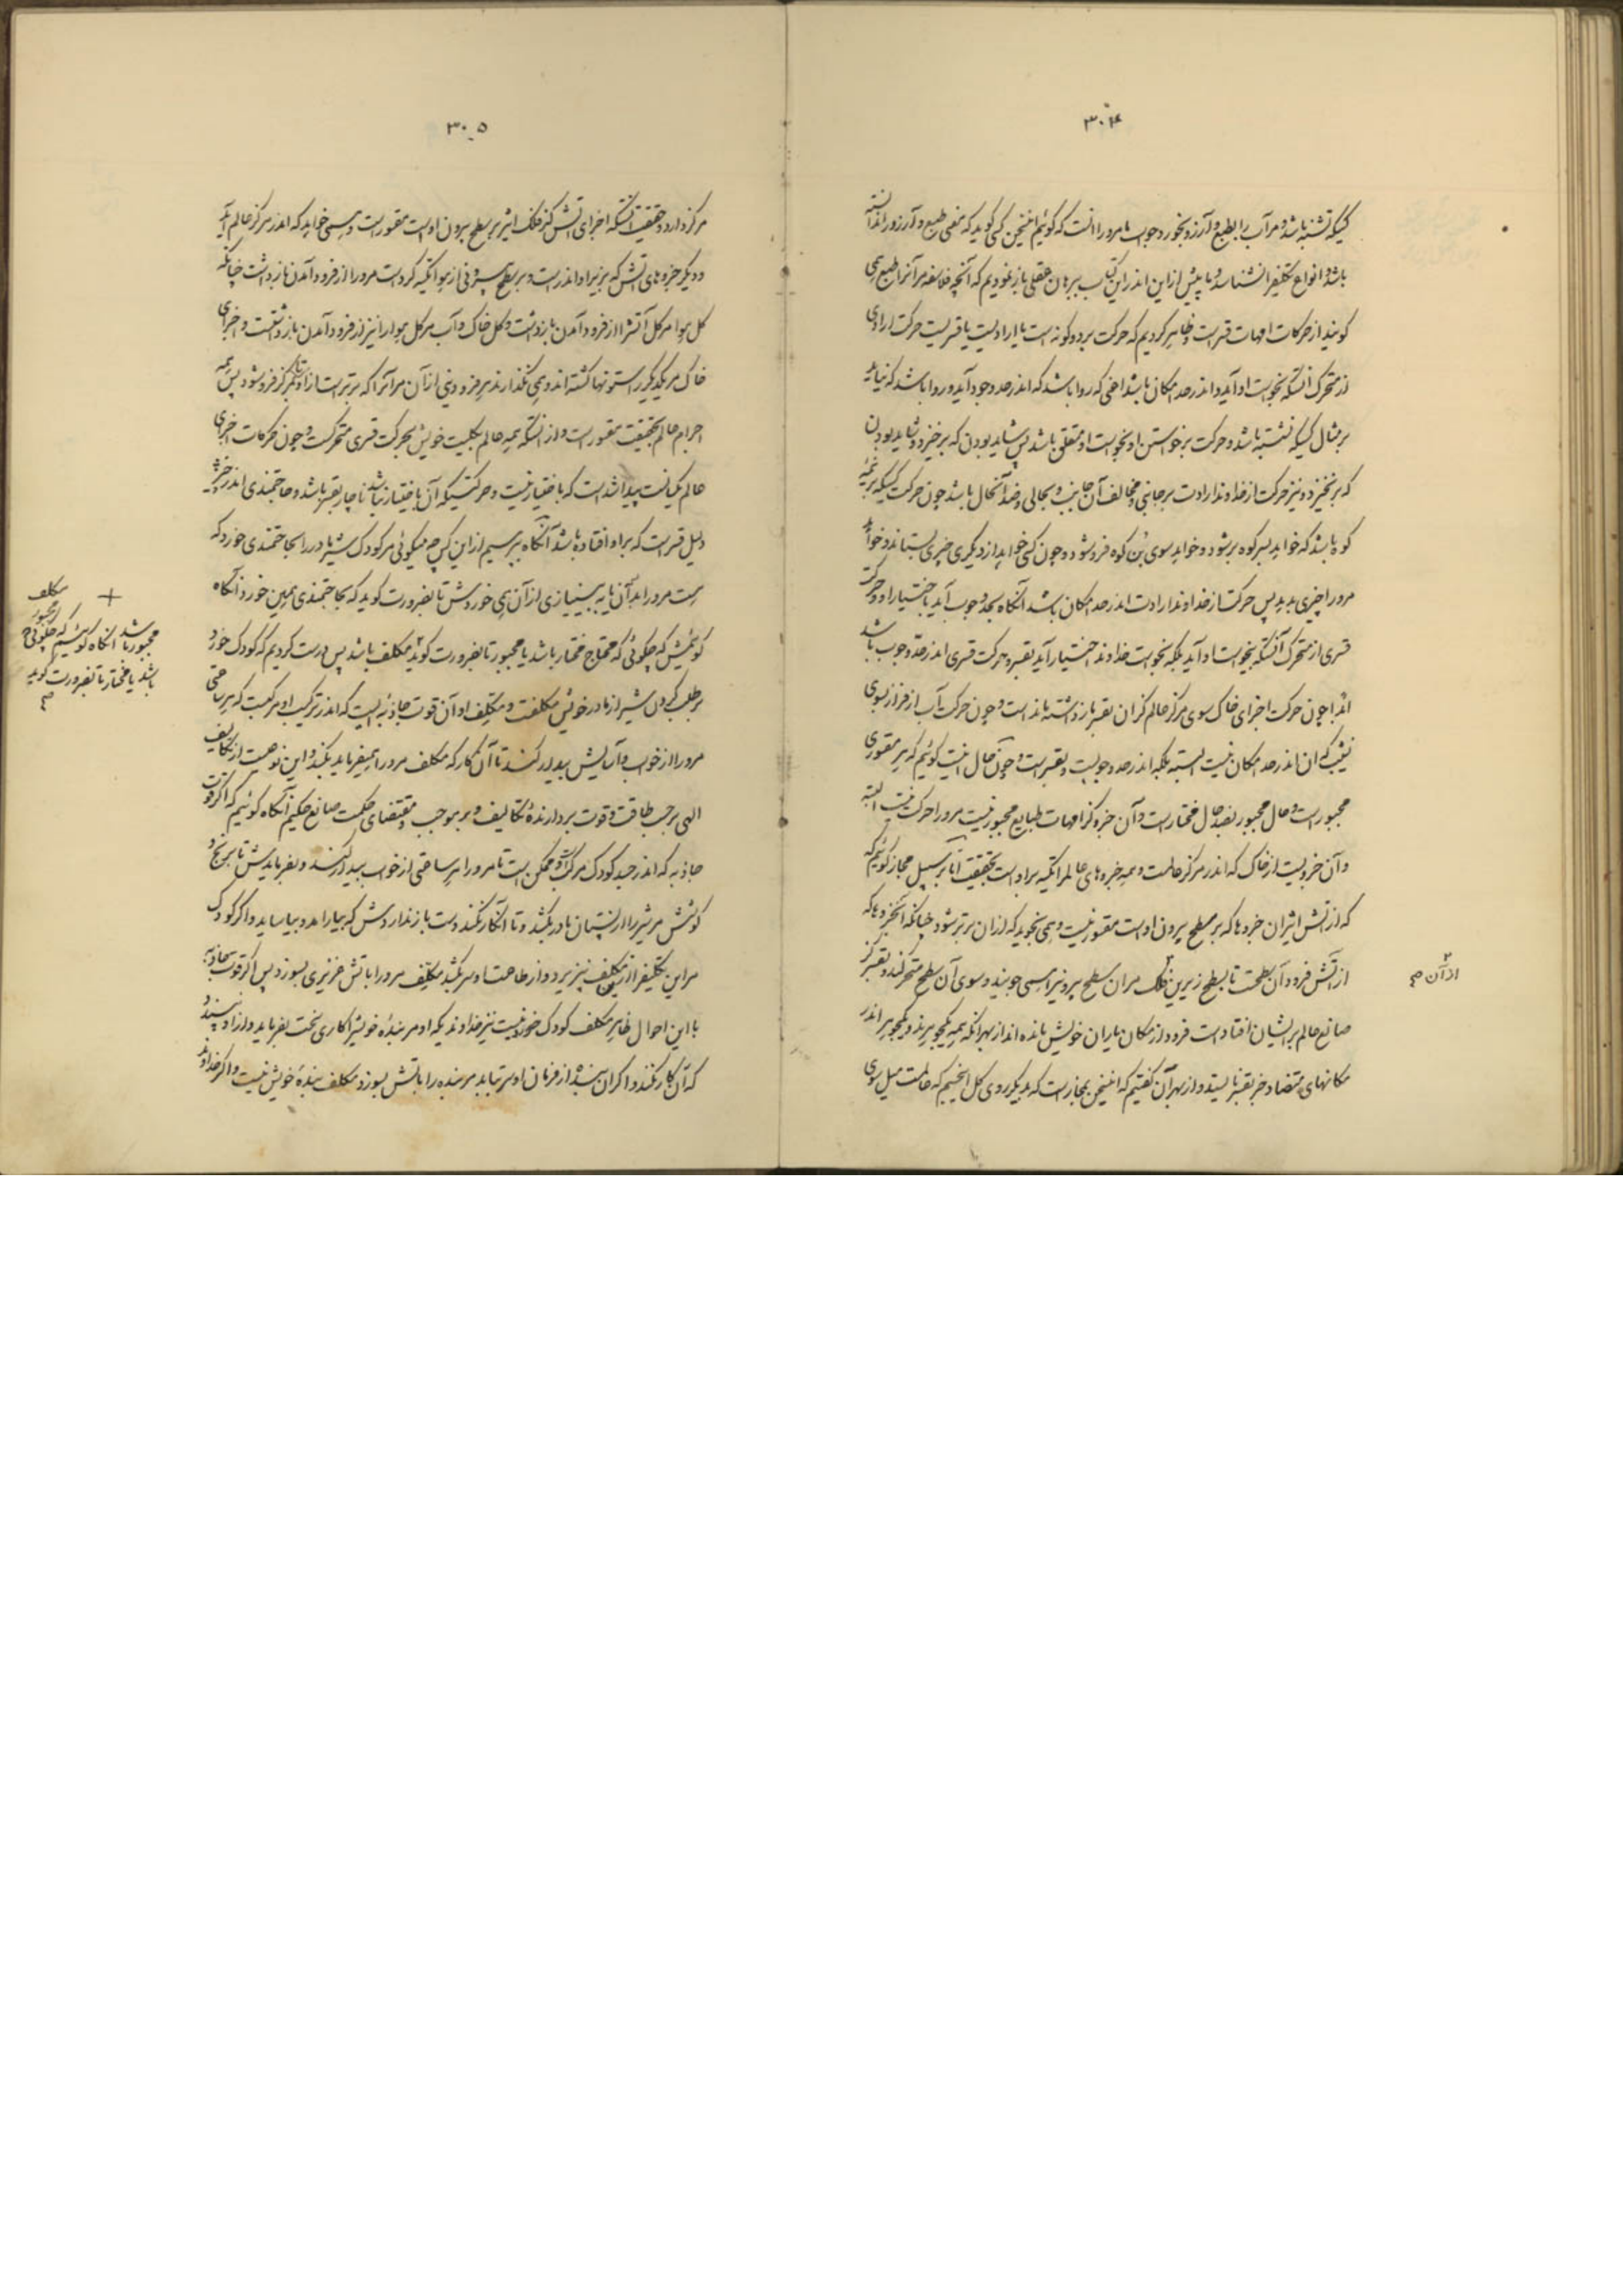 ۳۰۴
کسیکه تشنه باشد و مر آب را بطبع و آرزو بخورد و جواب ما مرو را انست که گوئیم اینسخن کسی گوید که معنی طبع و آرزو را ندانسته
باشد و انواع تکلیف را نشناسد و ما پیش از این اندر این کتاب ببرهان عقلی باز نمودیم که آنچه فلاسفه مر آنرا طبع همی
گویند از حرکات امهات قسر است و ظاهر کردیم که حرکت بر دو گونه است یا ارادیست یا قسریست حرکت ارادی
از متحرک آنستکه بخواست او آید و اندر حد امکان باشد اعنی که روا باشد که اندر حد وجود آید و روا باشد که نیاید
بر مثال کسیکه نشسته باشد و حرکت برخواستن او بخواست او متعلق باشد پس شاید بودن که برخیزد و شاید بودن
که برنخیزد و نیز حرکت از خداوند ارادت بر جانبی و مخالف آن جانب و بحالی و ضد آنحال باشد چون حرکت کسیکه بر نیمه
کوه باشد که خواهد بسر کوه بر شود و خواهد سوی بن کوه فرو شود و چون کسی خواهد از دیگری چیزی بستاند و خواهد
مرو را چیزی بدهد پس حرکت از خداوند ارادت اندر حد امکان باشد آنگاه بحد وجوب آید باختیار او و حرکت
قسری از متحرک آنستکه نه بخواست او آید بلکه بخواست خداوند اختیار آید بقسر و حرکت قسری اندر حد وجوب باشد
اندر چون حرکت اجزای خاک سوی مرکز عالم کز ان بقسر باز داشته مانده است و چون حرکت آب از فراز بسوی
نشیب که ان اندر حد امکان نیست البته بلکه اندر حد وجوبست و بقسر است و چون حال اینست گوئیم که هر مقسوری
مجبور است و حال مجبور بضد حال مختار است و آن جزو کز امهات طبایع مجبور نیست مرو را حرکت نیست البته
و آن جزویست از خاک که اندر مرکز عالمست و همه جزوهای عالم را تکیه بر اوست بحقیقت اما بر سبیل مجاز گوئیم که
که از آتش اثیر ان جزوها که بر سطح بیرون اوست مقسور نیست و همی نجوید که از ان برتر شود چنانکه آنجزوها که
از آتش فرود آن سطحست تا بسطح زیرین فلک مر ان سطح بیرونیرا همی جویند و سوی آن سطح متحرکند و بقسر کز
صانع عالم بر ایشان افتاد است فرود از مکان یاران خویش مانده اند از بهر انکه همه یکجوهرند و یکجوهر اندر
مکانهای متضاد جز بقسر نایستد و از بهر آن گفتیم که اینسخن بمجاز است که بدیگر روی کل انجسم که عالمست میل سوی
۲ از آن صح
۳۰۵
مرکز دارد و حقیقت آنستکه اجزای آتش کز فلک اثیر بر سطح بیرون اوست مقسور است و همی خواهد که اندر مرکز عالم آید
و دیگر جزوهای آتش که بزیر او اندر است و بر سطح بیرونی از هوا تکیه کرد است مرو را از فرود آمدن باز داشت چنانکه
کل هوا مر کل آتشرا از فرود آمدن باز داشت و کل خاک و آب مر کل هوا را نیز از فرود آمدن باز داشتست و اجزای
خاک مر یکدیگر را ستونها گشته اند و همی نگذارند هر فرودینی از آن مر آنرا که برتر است از او تا بمرکز فرو شود پس همه
اجرام عالم بحقیقت مقسور است و از آنستکه همه عالم بکلیت خویش بحرکت قسری متحرکست و چون حرکات اجزای
عالم یکسانست پیدا شد است که باختیار نیست و حرکتیکه آن باختیار نباشد ناچار بقسر باشد و حاجتمندی اندر چیز
دلیل قسر است که بر او افتاده باشد آنگاه بپرسیم از این کس چه میگوئی مر کودک شیر مادر را بحاجتمندی خورد که
هست مرو را بدآن یا به بینیازی از آن همی خوردش تا بضرورت گوید که بحاجتمندی همین خورد آنگاه
گوئیمش که چگوئی که محتاج مختار باشد یا مجبور تا بضرورت گوید مکلف باشد پس درست کردیم که کودک خورد
بر طلب کردن شیر از مادر خویش مکلفست و مکلف او آن قوت جاذبه ایست که اندر ترکیب او مرکبست که هر ساعتی
مرو را از خواب و آسایش بیدار کند تا آن کار که مکلف مرو را همیفرماید بکند و این نوعیست از تکالیف
الهی بر حسب طاقت و قوت بردارندهٔ تکالیف و بر موجب و مقتضای حکمت صانع حکیم آنگاه گوئیم که اگر قوت
جاذبه که اندر جسد کودک مرکب و ممکن است تا مرو را هر ساعتی از خواب بیدار کند و بفرمایدش تا برنج و
کوشش مر شیر را از پستان مادر بکشد و تا آنکار نکند دست باز ندارَدش که بیارامد و بیاساید و اگر کودک
مر این تکلیف را از مکلف نپذیرد و از طاعت او سر بکشد مکلف مرو را بآتش غریزی بسوزد پس اگر قوت جاذبه
با این احوال ظاهر مکلف کودک خورد نیست نیز خداوندیکه او مر بندهٔ خویشرا کاری سخت بفرماید و از او نپسندد
که آن کار نکند و اگر ان بنده از فرمان او سر بتابد مر بنده را بآتش بسوزد مکلف بندهٔ خویش نیست و اگر خداوند
+ مکلف
مجبور باشد آنگاه گوئیم که چگوئی
باشد یا مختار تا بضرورت گوید
صح